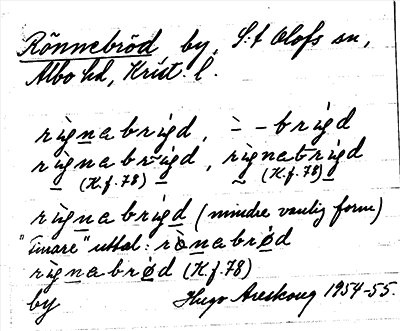 Rönnebröd by, S:t Olofs sn,
Albo hd, Krist. l.
rignabrigd, - - brigd
rignabrigd, rignabrigd
(K.f. 78) (K.f. 78)
rignabrigd (mindre vanlig form)
"finare" uttal: rònabrød
rignabrød (K.f. 78)
by Hugo Areskoug 1954-55.